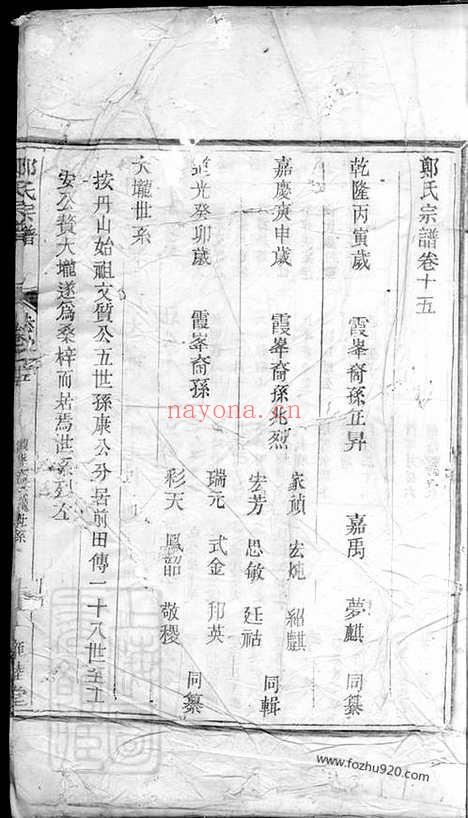 鄭氏宗譜卷十五
乾隆丙寅歲 霞峯裔孫正昇 嘉禹 夢麒 同纂
嘉慶庚申歲 霞峯裔孫兆烈 家禎 宏烷 紹麒 宏芳 思敏 廷祜 同輯
道光癸卯歲 霞峯裔孫 瑞元 式金 印英 彩天 鳳韶 敬稷 同纂
大壠世系
按丹山始祖文質公五世孫康公分居前田傳一十八世至工
安公贅大壠遂爲桑梓而居焉世系列左
鄭氏宗譜
nayona.cn
www.fozhu920.com